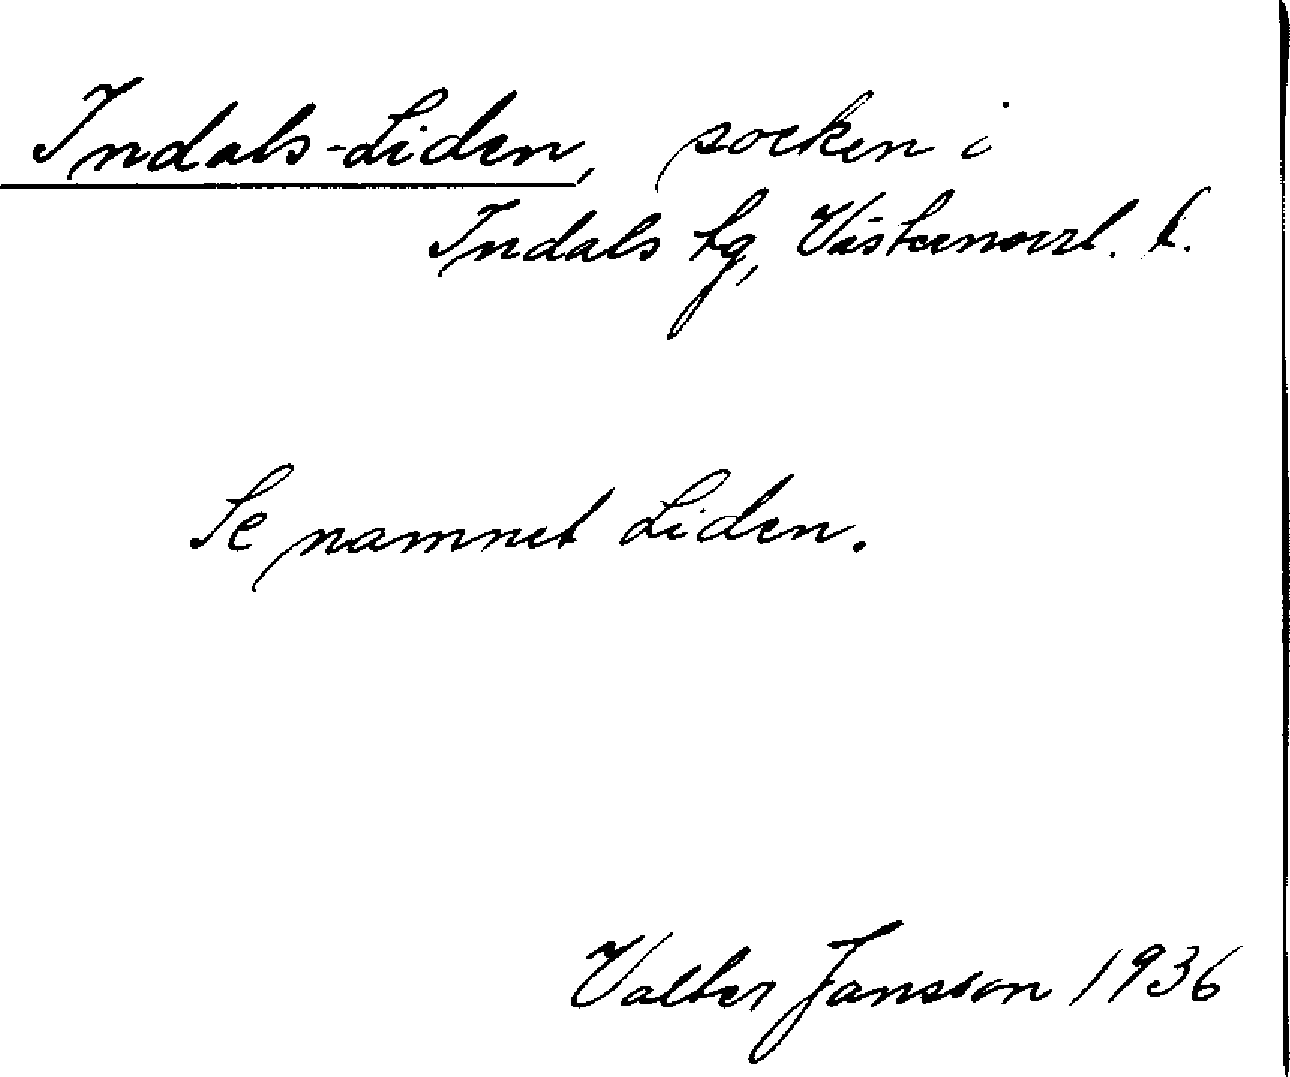 Indals-Liden, socken i
Indals tg, Västernorrl. l.
Se namnet Liden.
Valter Jansson 1936